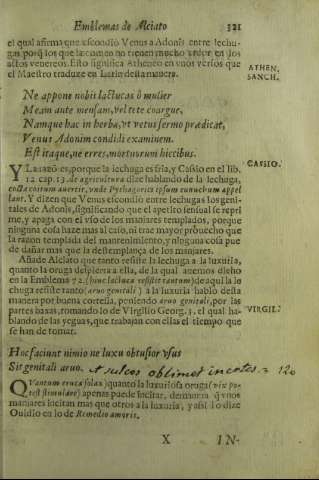 Emblemas de Alciato 321
el qual afirma que escondio Venus a Adonis entre lechu-
gas porq̃ los que las comen no tienen mucho ardor en los
actos venereos. Esto significa Atheneo en vnos versos que
el Maestro traduze en Latin desta manera.
ATHEN.
SANCH.
Ne appone nobis lactucas ô mulier
Meam ante mensam, vel te te coargue,
Namque hac in herba, vt vetus sermo prædicat,
Venus Adonim condidi examinem.
Est itaque, ne erres, mortuorum hiccibus.
CASSIO.
Y La razõ es, porque la lechuga es fria, y Cassio en el lib.
12. cap. 13. de agricultura dize hablando de la lechuga,
coitæ coitum auertit, vnde Pythagorici ipsum eunuchum appel
lant. Y dizen que Venus escondio entre lechugas los geni-
tales de Adonis, significando que el apetito sensual se repri
me, y apaga con el vso de los manjares templados, porque
ninguna cosa haze mas al caso, ni trae mayor prouecho que
la razon templada del mantenimiento, y ninguna cosa pue
de dañar mas que la destemplança de los manjares.
Añade Alciato que tanto resiste la lechuga a la luxuria,
quanto la oruga despierta a ella, de la qual auemos dicho
en la Emblema 72. (hunc lactuca resistit tantum) de aqui la le
chuga resiste tanto (aruo genitali) a la luxuria hablo desta
manera por buena cortesia, poniendo aruo genitali, por las
partes baxas, tomandolo de Virgilio Georg. 3. el qual ha-
blando de las yeguas, que trabajan con ellas el tiempo que
se han de tomar.
VIRGIL.
Hoc faciunt nimio ne luxu obtusior vsus
Sit genitali aruo. et sulcos oblimet inertes. 120
QVantum eruca salax) quanto la luxuriosa oruga (vix po-
test stimulare) apenas puede incitar, demuestra q̃ vnos
manjares incitan mas que otros a la luxuria, y assi lo dize
Ouidio en lo de Remedio amoris.
X IN-